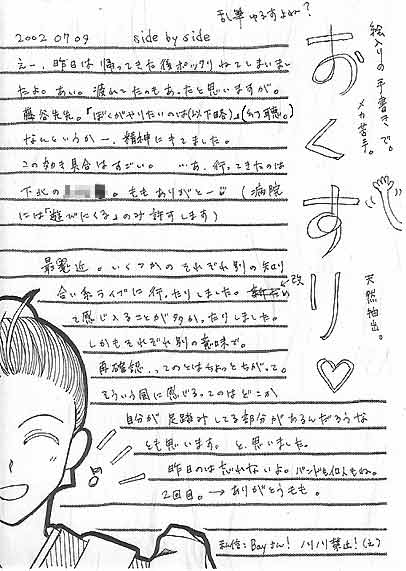 乱筆ゆるすよね？
絵入りの手書きで。
メカ苦手。
おくすり♡
天然抽出。
2002 07 09 side by side
えー、昨日は帰ってきた後ポックリねてしまいまし
たよ。あい。渡んてたのもあったと思いますが。
藤谷先生。「ぼくがやりたいのは(以下略)」
なんというかー、精神にキてました。
この効き具合はすごい。 …あ、行ってきたのは
下北の
。ももありがとー (病院
には「遊びにくる」のみ許すします)
最近。いくつかのそれぞれ別の知り
合い系ライブに行ったりしました。
改
て感じ入ることが多かったりしました。
しかもそれぞれ別の意味で。
再確認、ってのとはちょっとちがって。
そういう風に感じるってのはどこか
自分が足踏みしてる部分があるんだろうな
とも思います。と、思いました。
昨日のは忘れないよ。バンドも何もね。
2回目。→ありがとうもも。
私信：Bayさん！ノリノリ禁止！(え)